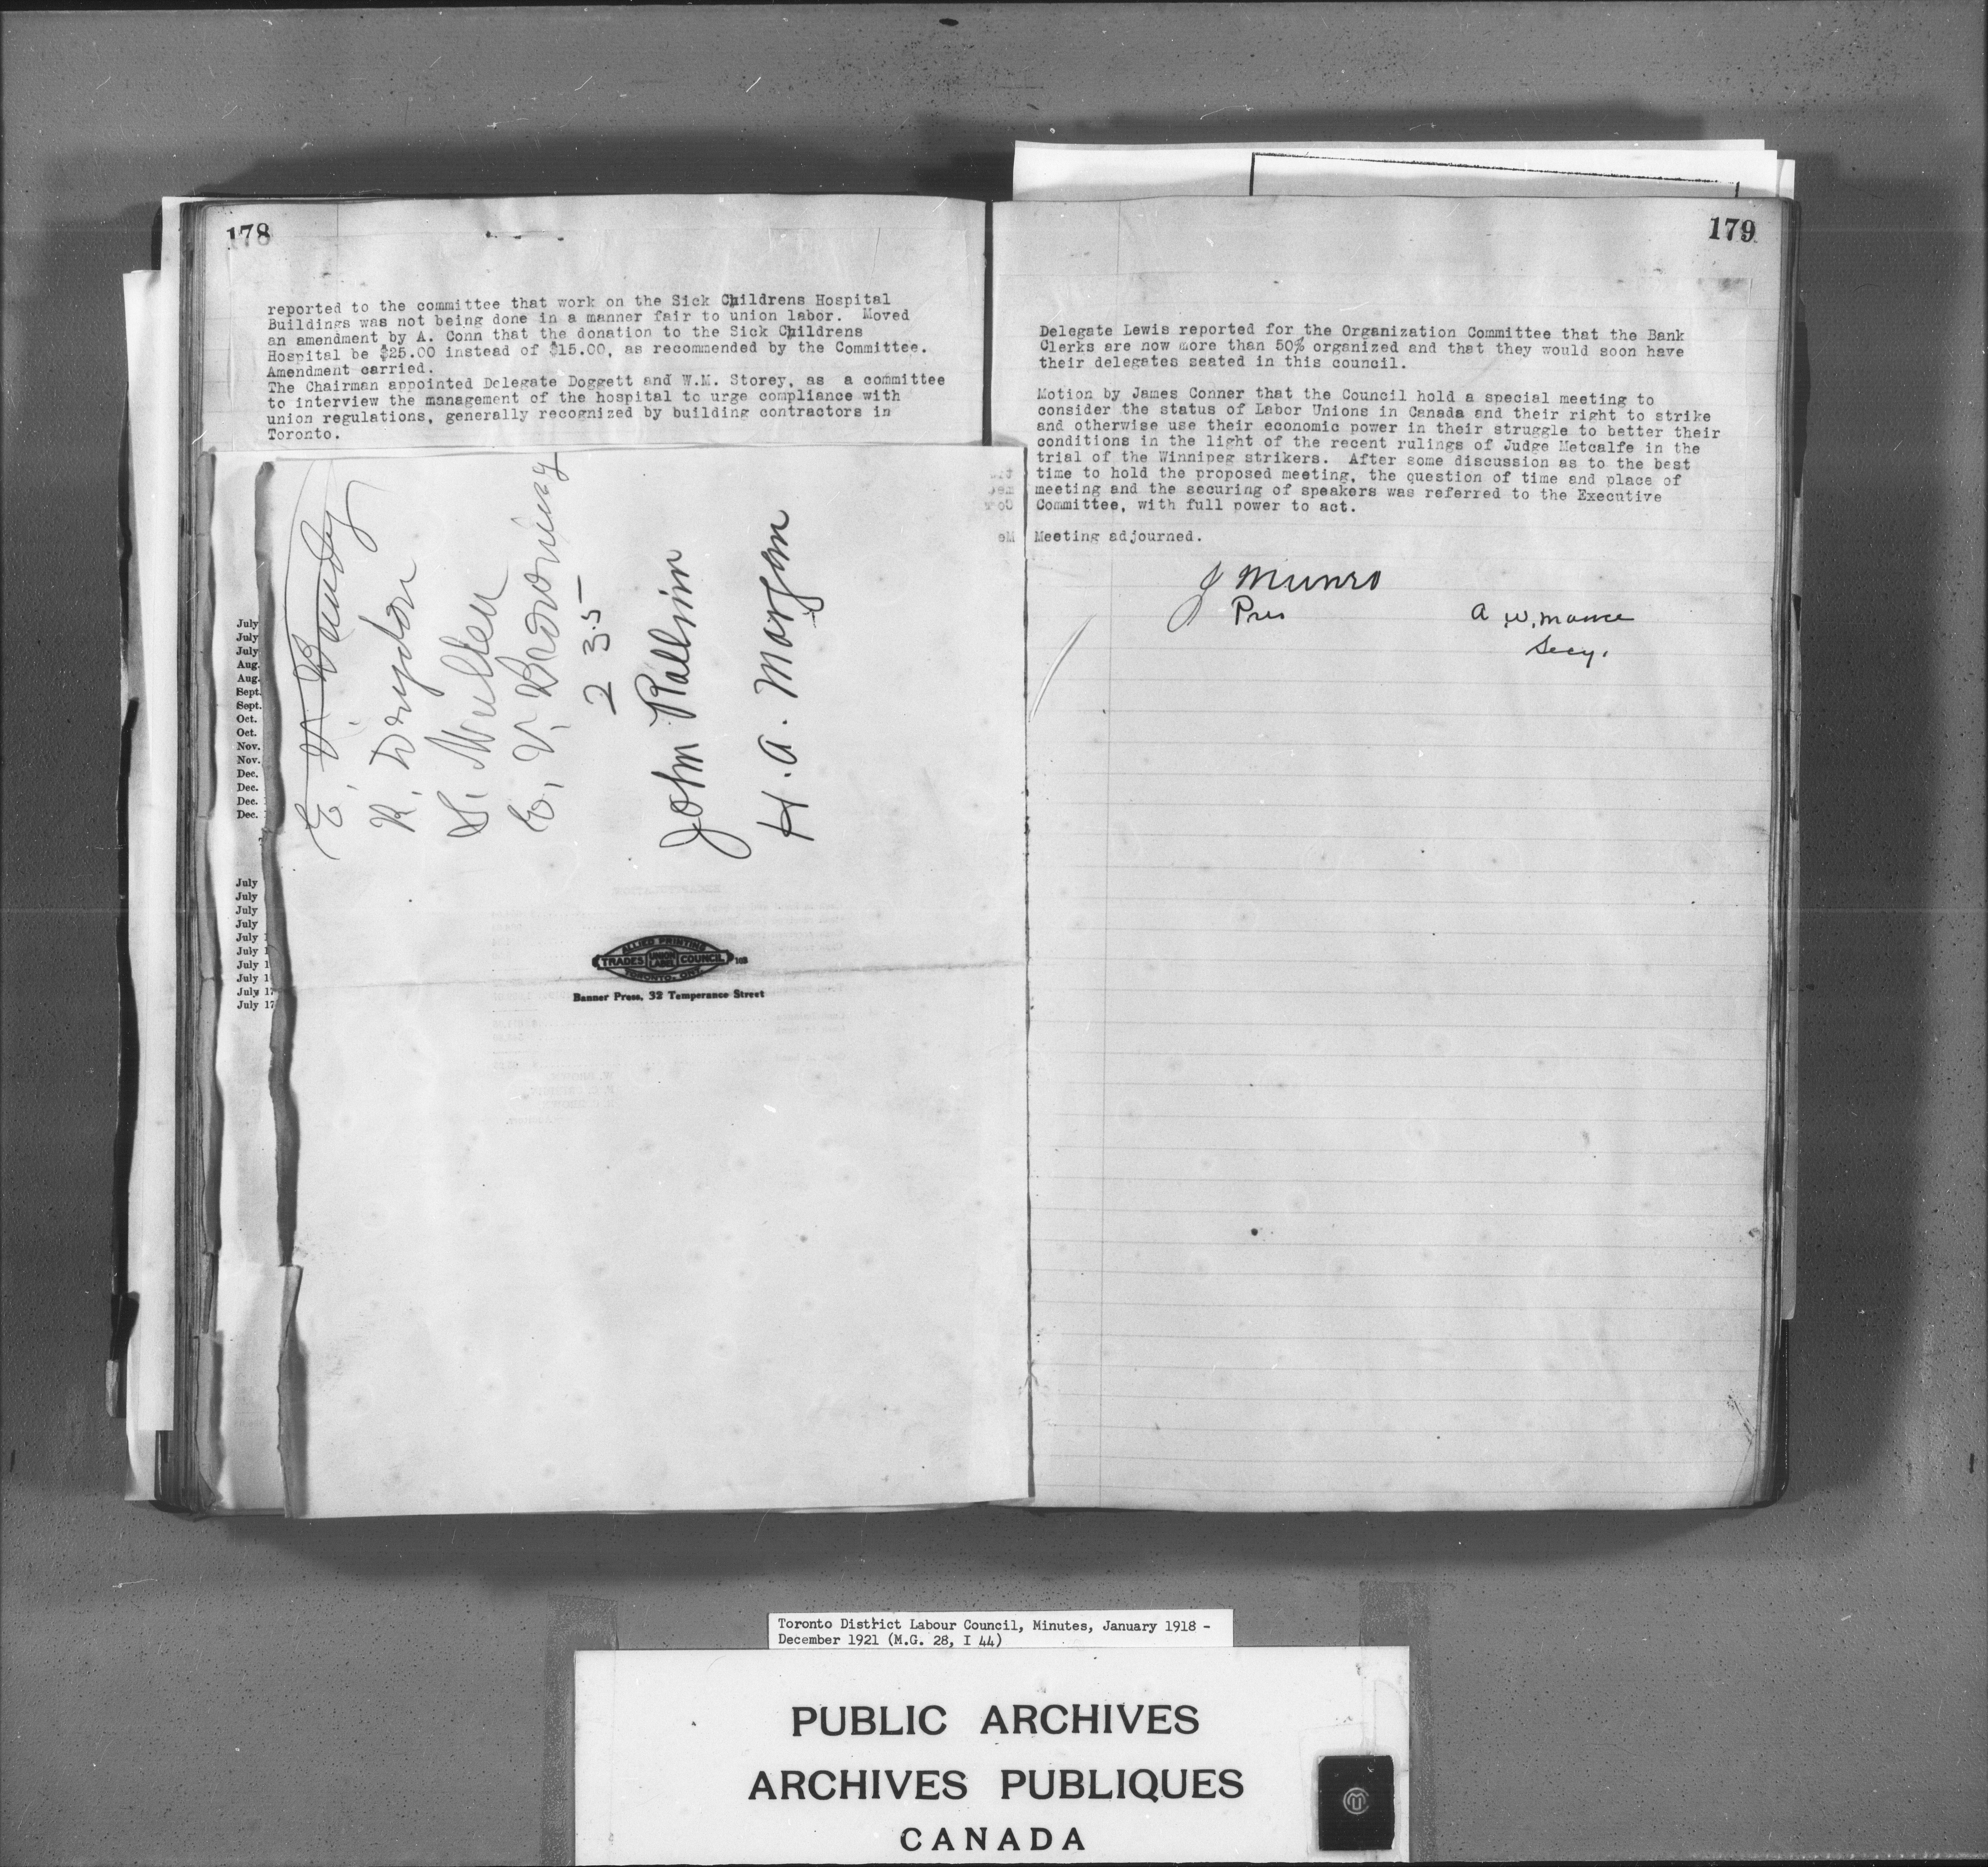 178
reported to the committee that work on the Sick Childrens Hospital
Buildings was not being done in a manner fair to union labor. Moved
an amendment by A. Conn that the donation to the Sick Childrens
Hospital be $25.00 instead of $15.00, as recommended by the Committee.
Amendment carried.
The Chairman appointed Delegate Doggett and W.M. Storey, as a committee
to interview the management of the hospital to urge compliance with
union regulations, generally recognized by building contractors in
Toronto.
July
July
July
Aug.
Aug.
Sept.
Sept.
Oct.
Oct.
Nov.
Nov.
Dec.
Dec.
Dec.
Dec.
July
July
July
July
July 1
July 1
July 1
July 1
July 17
July 17
E. V.
R. Drydon
S.
E. V. Browning
235
John
H. A. Morgan
ALLIED PRINTING
TRADES UNION LABEL COUNCIL 103
TORONTO, ONT.
Banner Press, 32 Temperance Street
179
Delegate Lewis reported for the Organization Committee that the Bank
Clerks are now more than 50% organized and that they would soon have
their delegates seated in this council.
Motion by James Conner that the Council hold a special meeting to
consider the status of Labor Unions in Canada and their right to strike
and otherwise use their economic power in their struggle to better their
conditions in the light of the recent rulings of Judge Metcalfe in the
trial of the Winnipeg strikers. After some discussion as to the best
time to hold the proposed meeting, the question of time and place of
meeting and the securing of speakers was referred to the Executive
Committee, with full power to act.
Meeting adjourned.
J Munro
Pres
A. W. Mance
Secy.
Toronto District Labour Council, Minutes, January 1918 -
December 1921 (M.G. 28, I 44)
PUBLIC ARCHIVES
ARCHIVES PUBLIQUES
CANADA